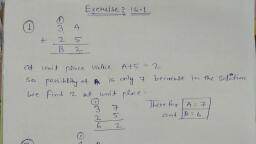 Exercise: 16.1
① ①
3 A
+ 2 5
B 2
at unit place value A+5 = 2
So possiblity of A is only 7 because in the solution
we find 2 at unit place.
①
3 7
2 5
6 2
Therefor A = 7
and B = 6